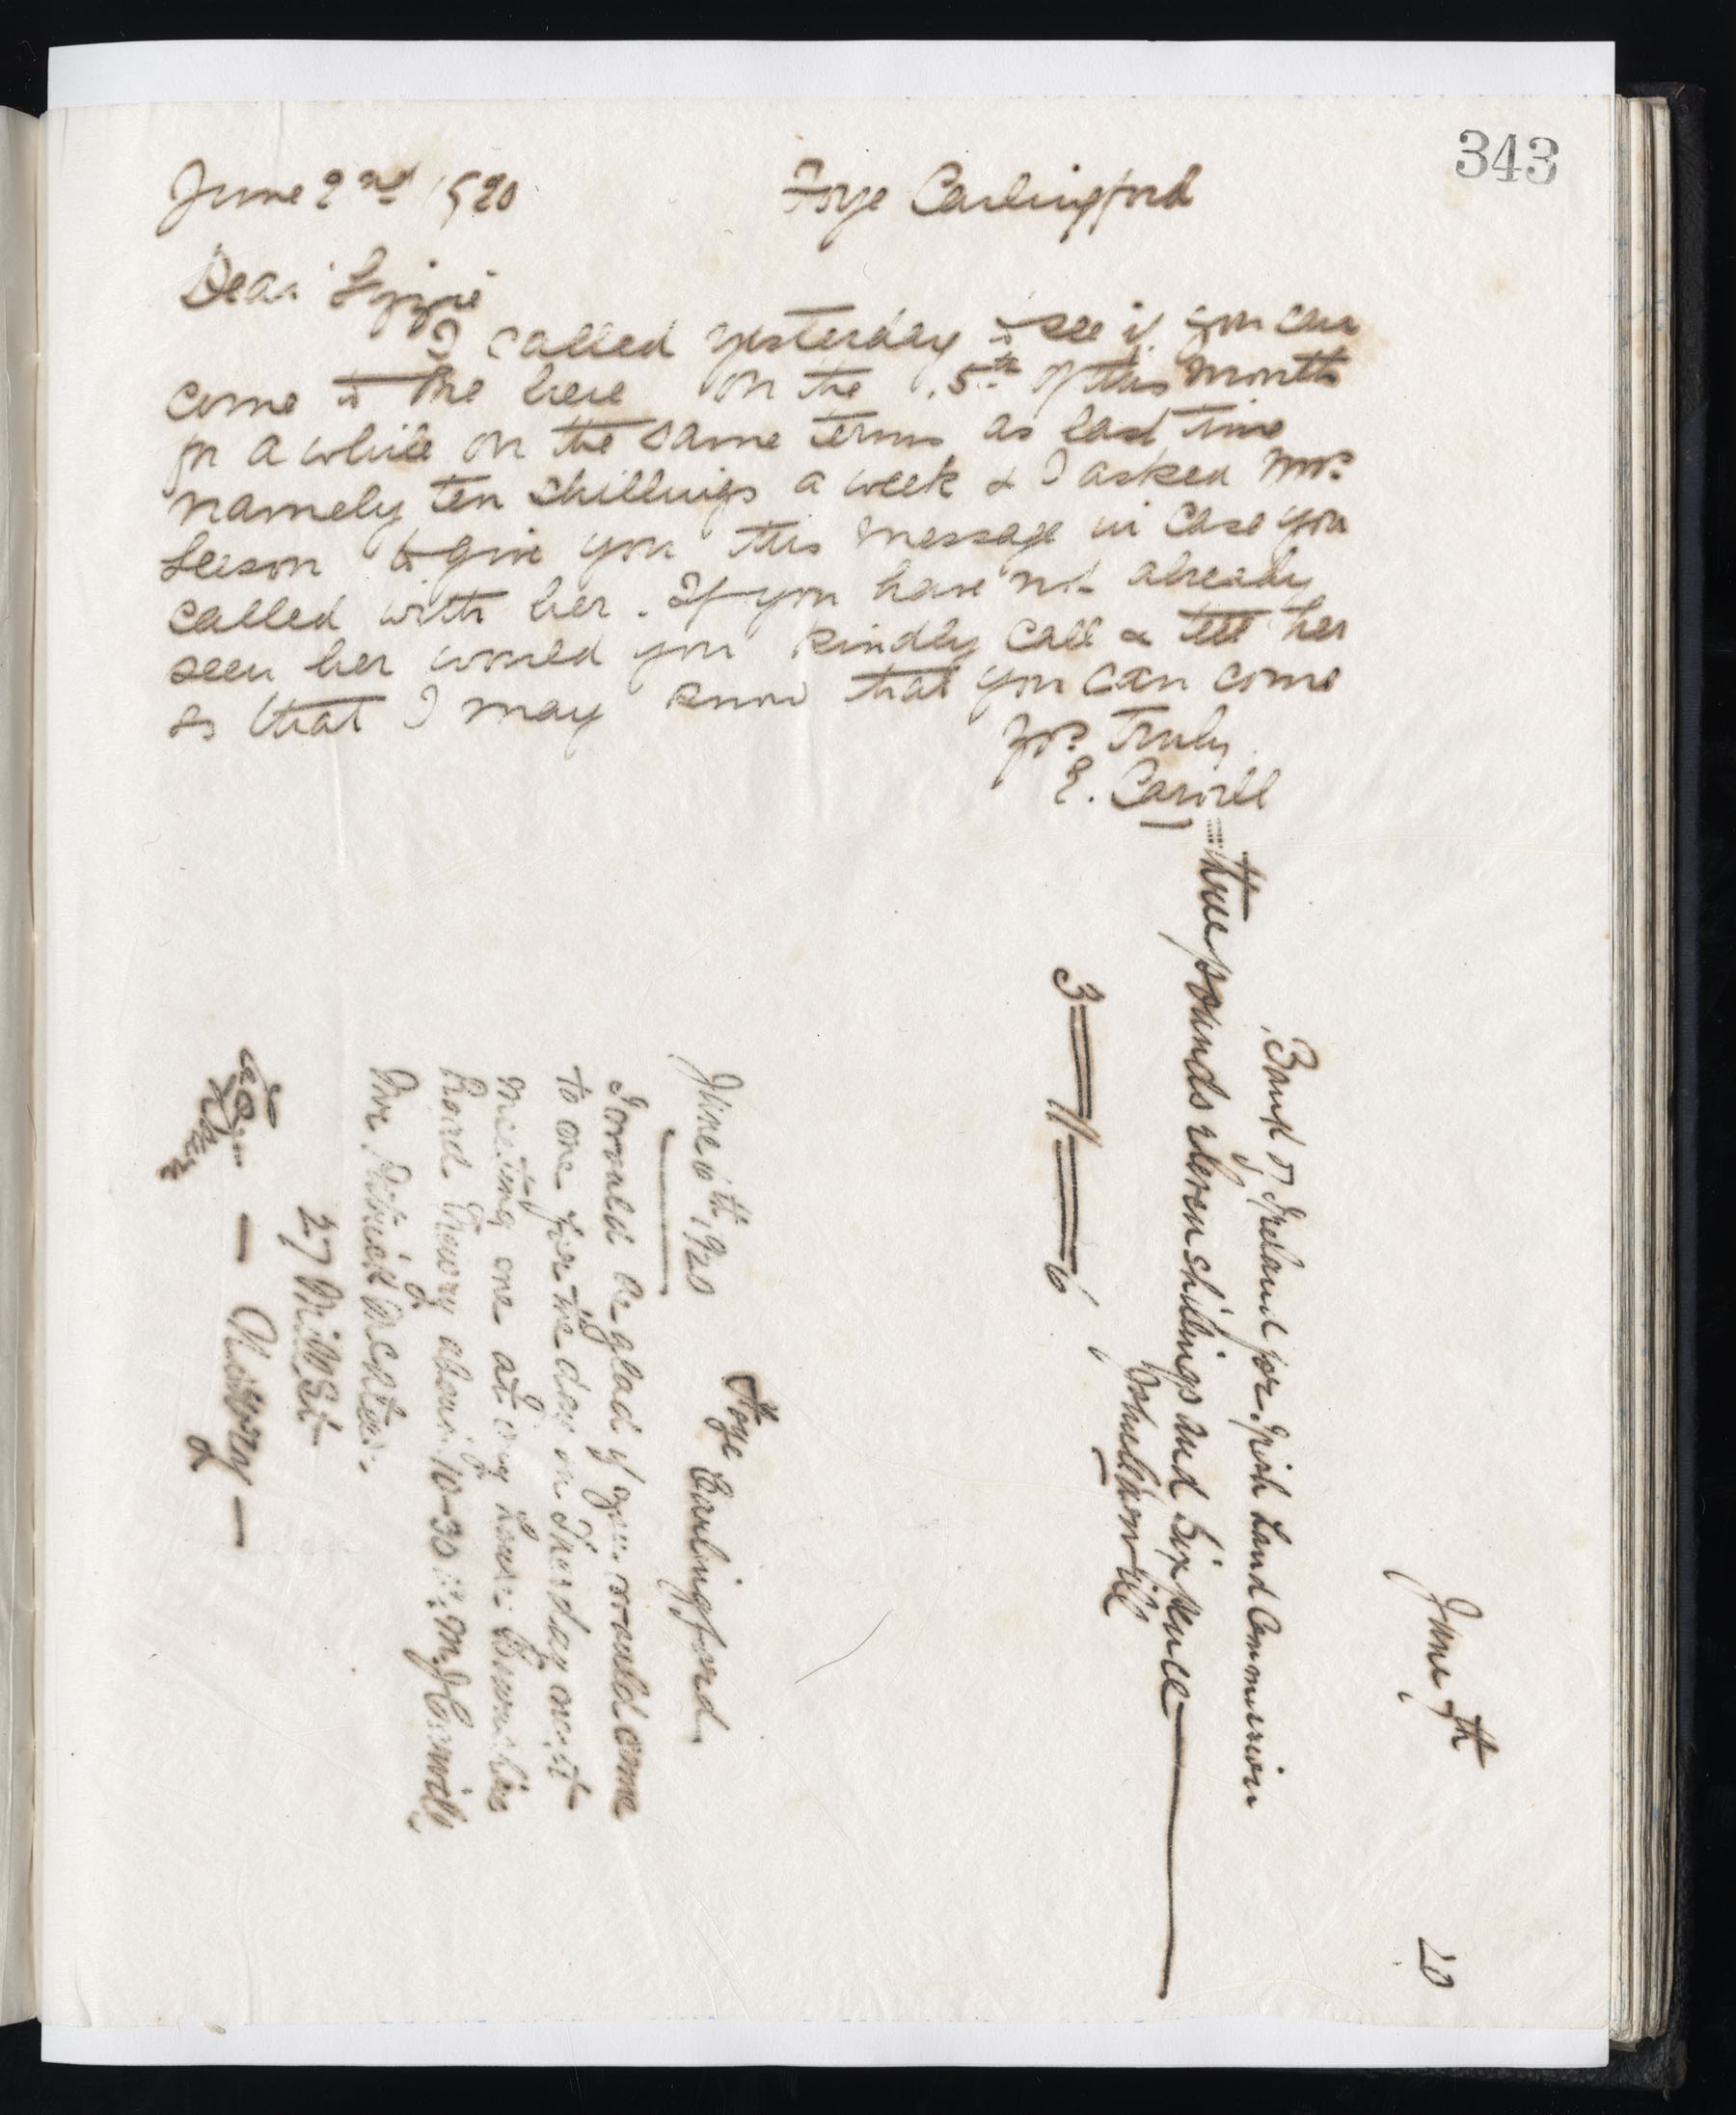 343
June 2nd 1920 Foye Carlingford
Dear Lizzie
I called yesterday to see if you can
come to me here on the 15th of this month
for a while on the same terms as last time
namely ten shillings a week & I asked Mrs
Leeson to give you this message in case you
called with her. If you have not already
seen her would you kindly call & tell her
so that I may know that you can come
Yrs Truly
E. Carvill
June 7th 20
Bank of Ireland for Irish Land Commission
three pounds eleven shillings and sixpence
John Carvill
3 — 11 — 6
June 6th 1920 Foye Carlingford
I would be glad if you would come
to me for the day on Thursday next
meeting me at my house
Road Newry about 10-30 a.m. J Carvill
Mr Patrick
27 Mill St
Newry —